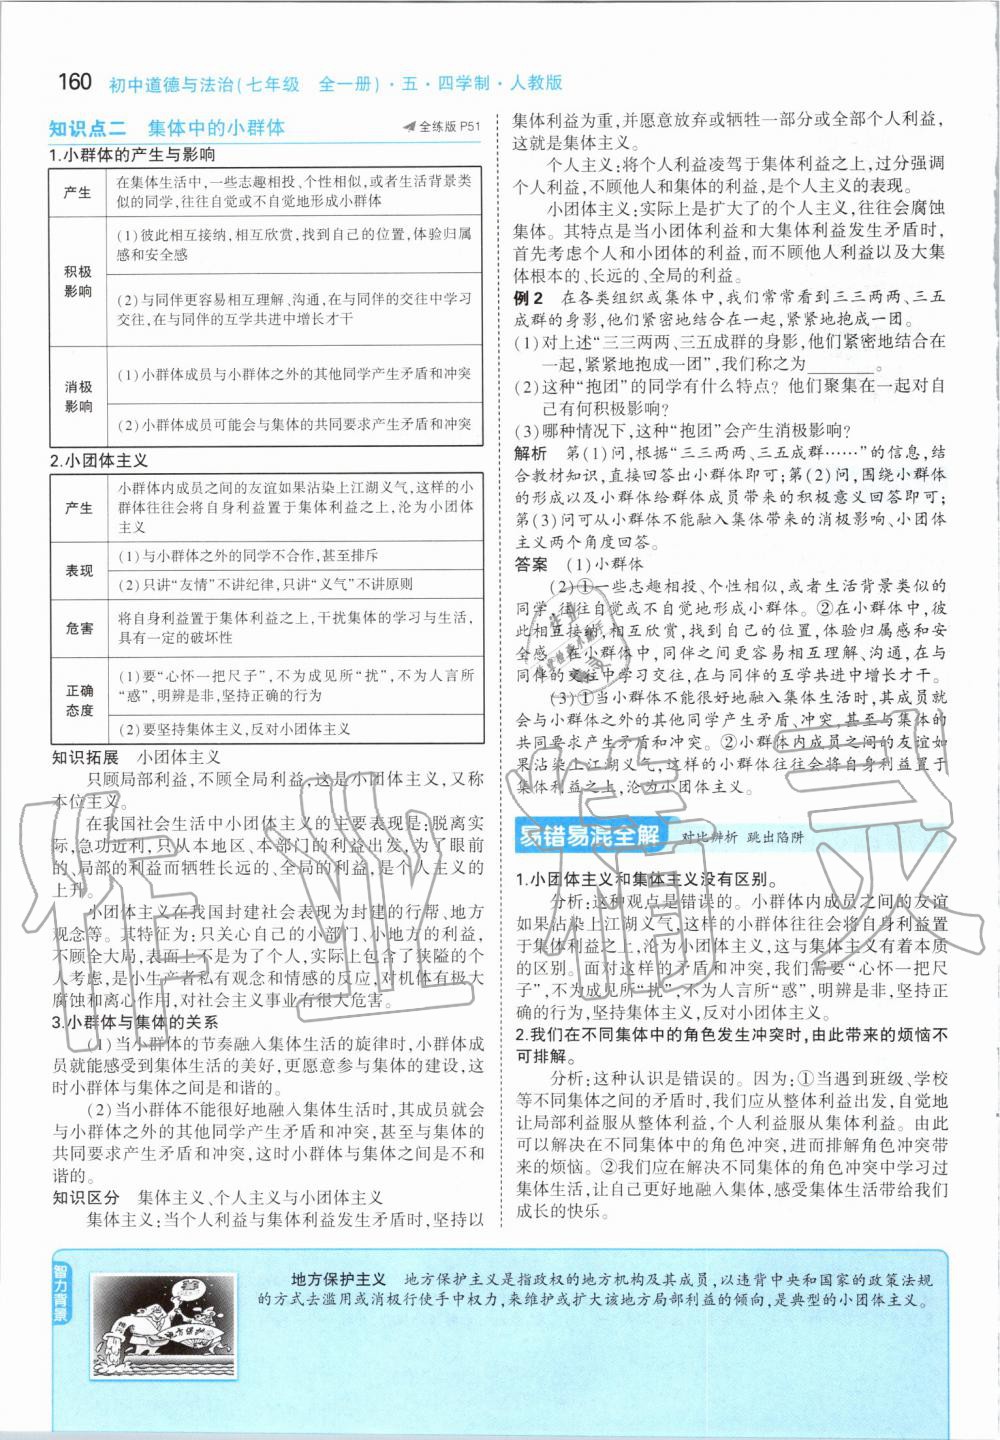 160 初中道德与法治(七年级 全一册)·五·四学制·人教版
知识点二 集体中的小群体 全练版 P51
1.小群体的产生与影响
产生
在集体生活中,一些志趣相投、个性相似,或者生活背景类
似的同学,往往自觉或不自觉地形成小群体
积极
影响
(1)彼此相互接纳,相互欣赏,找到自己的位置,体验归属
感和安全感
(2)与同伴更容易相互理解、沟通,在与同伴的交往中学习
交往,在与同伴的互学共进中增长才干
消极
影响
(1)小群体成员与小群体之外的其他同学产生矛盾和冲突
(2)小群体成员可能会与集体的共同要求产生矛盾和冲突
2.小团体主义
产生
小群体内成员之间的友谊如果沾染上江湖义气,这样的小
群体往往会将自身利益置于集体利益之上,沦为小团体
主义
表现
(1)与小群体之外的同学不合作,甚至排斥
(2)只讲“友情”不讲纪律,只讲“义气”不讲原则
危害
将自身利益置于集体利益之上,干扰集体的学习与生活,
具有一定的破坏性
正确
态度
(1)要“心怀一把尺子”,不为成见所“扰”,不为人言所
“惑”,明辨是非,坚持正确的行为
(2)要坚持集体主义,反对小团体主义
知识拓展 小团体主义
只顾局部利益,不顾全局利益,这是小团体主义,又称
本位主义。
在我国社会生活中小团体主义的主要表现是:脱离实
际,急功近利,只从本地区、本部门的利益出发,为了眼前
的、局部的利益而牺牲长远的、全局的利益,是个人主义的
上升。
小团体主义在我国封建社会表现为封建的行帮、地方
观念等。其特征为:只关心自己的小部门、小地方的利益,
不顾全大局,表面上不是为了个人,实际上包含了狭隘的个
人考虑,是小生产者私有观念和情感的反应,对机体有极大
腐蚀和离心作用,对社会主义事业有很大危害。
3.小群体与集体的关系
(1)当小群体的节奏融入集体生活的旋律时,小群体成
员就能感受到集体生活的美好,更愿意参与集体的建设,这
时小群体与集体之间是和谐的。
(2)当小群体不能很好地融入集体生活时,其成员就会
与小群体之外的其他同学产生矛盾和冲突,甚至与集体的
共同要求产生矛盾和冲突,这时小群体与集体之间是不和
谐的。
知识区分 集体主义、个人主义与小团体主义
集体主义:当个人利益与集体利益发生矛盾时,坚持以
集体利益为重,并愿意放弃或牺牲一部分或全部个人利益,
这就是集体主义。
个人主义:将个人利益凌驾于集体利益之上,过分强调
个人利益,不顾他人和集体的利益,是个人主义的表现。
小团体主义:实际上是扩大了的个人主义,往往会腐蚀
集体。其特点是当小团体利益和大集体利益发生矛盾时,
首先考虑个人和小团体的利益,而不顾他人利益以及大集
体根本的、长远的、全局的利益。
例2 在各类组织或集体中,我们常常看到三三两两、三五
成群的身影,他们紧密地结合在一起,紧紧地抱成一团。
(1)对上述“三三两两、三五成群的身影,他们紧密地结合在
一起,紧紧地抱成一团”,我们称之为________。
(2)这种“抱团”的同学有什么特点?他们聚集在一起对自
己有何积极影响?
(3)哪种情况下,这种“抱团”会产生消极影响?
解析 第(1)问,根据“三三两两、三五成群……”的信息,结
合教材知识,直接回答出小群体即可;第(2)问,围绕小群体
的形成以及小群体给群体成员带来的积极意义回答即可;
第(3)问可从小群体不能融入集体带来的消极影响、小团体
主义两个角度回答。
答案 (1)小群体
(2)①一些志趣相投、个性相似,或者生活背景类似的
同学,往往自觉或不自觉地形成小群体。②在小群体中,彼
此相互接纳,相互欣赏,找到自己的位置,体验归属感和安
全感。在小群体中,同伴之间更容易相互理解、沟通,在与
同伴的交往中学习交往,在与同伴的互学共进中增长才干。
(3)①当小群体不能很好地融入集体生活时,其成员就
会与小群体之外的其他同学产生矛盾、冲突,甚至与集体的
共同要求产生矛盾和冲突。②小群体内成员之间的友谊如
果沾染上江湖义气,这样的小群体往往会将自身利益置于
集体利益之上,沦为小团体主义。
易错易混全解 对比辨析 跳出陷阱
1.小团体主义和集体主义没有区别。
分析:这种观点是错误的。小群体内成员之间的友谊
如果沾染上江湖义气,这样的小群体往往会将自身利益置
于集体利益之上,沦为小团体主义,这与集体主义有着本质
的区别。面对这样的矛盾和冲突,我们需要“心怀一把尺
子”,不为成见所“扰”,不为人言所“惑”,明辨是非,坚持正
确的行为,坚持集体主义,反对小团体主义。
2.我们在不同集体中的角色发生冲突时,由此带来的烦恼不
可排解。
分析:这种认识是错误的。因为:①当遇到班级、学校
等不同集体之间的矛盾时,我们应从整体利益出发,自觉地
让局部利益服从整体利益,个人利益服从集体利益。由此
可以解决在不同集体中的角色冲突,进而排解角色冲突带
来的烦恼。②我们应在解决不同集体的角色冲突中学习过
集体生活,让自己更好地融入集体,感受集体生活带给我们
成长的快乐。
智力背景
地方保护
地方保护主义 地方保护主义是指政权的地方机构及其成员,以违背中央和国家的政策法规
的方式去滥用或消极行使手中权力,来维护或扩大该地方局部利益的倾向,是典型的小团体主义。
作业精灵